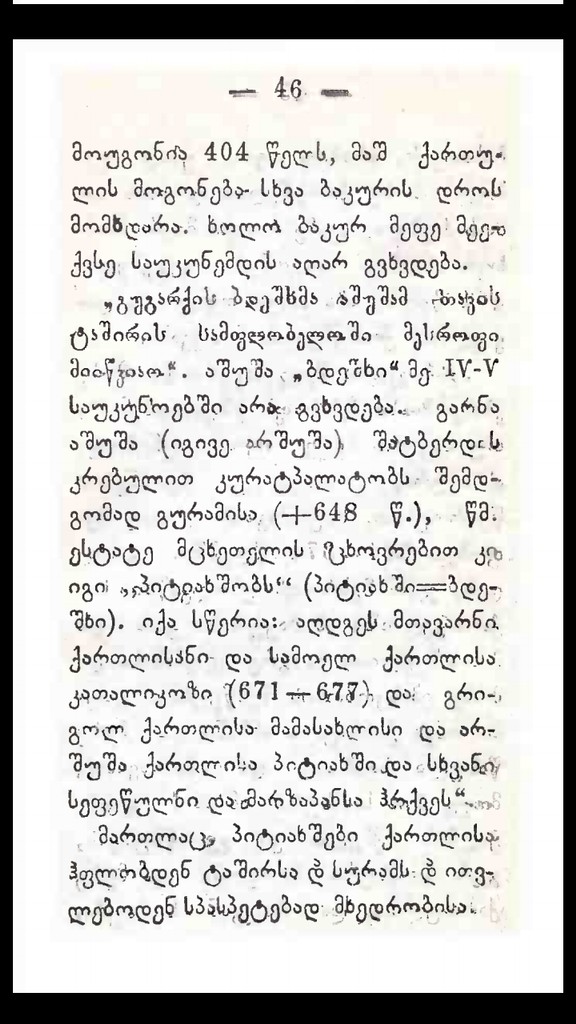 — 46 —
მოუგონია 404 წელს, მაშ ქართუ-
ლის მოგონება სხვა ბაკურის დროს
მომხდარა. ხოლო ბაკურ მეფე მეე-
ქვსე საუკუნემდის აღარ გვხვდება.
„გუგარქის ბდეშხმა აშუშამ თავის
ტაშირის სამფლობელოში მესროფი
მიიწვიაო“. აშუშა „ბდეშხი“ მე IV-V
საუკუნოებში არა გვხვდება. გარნა
აშუშა (იგივე არშუშა) შატბერდის
კრებულით კურატპალატობს შემდ-
გომად გურამისა (+648 წ.), წმ.
ესტატე მცხეთელის ცხოვრებით კი
იგი „პიტიახშობს“ (პიტიახში=ბდე-
შხი). იქა სწერია: აღდგეს მთავარნი
ქართლისანი და სამოელ ქართლისა
კათალიკოზი (671—677) და გრი-
გოლ ქართლისა მამასახლისი და არ-
შუშა ქართლისა პიტიახში და სხვანი
სეფეწულნი და მარზაპანსა ჰრქვეს“
მართლაც, პიტიახშები ქართლისა
ჰფლობდენ ტაშირსა დ სურამს დ ითვ-
ლებოდენ სპასპეტებად მხედრობისა.